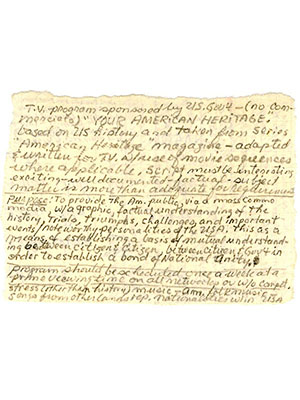 T.V. program sponsored by U.S. Gov't — (no com-
mercials) "YOUR AMERICAN HERITAGE"
based on US history and taken from series
"American Heritage" magazine — adapted
& written for T.V. w/use of movie sequences
— where applicable, script must be interesting
exciting — well documented, factual — subject
matter is more than adequate for
PURPOSE: To provide the Am. public, via a mass commo
media w/a graphic, factual understanding of the
history, Trials, Triumphs, challenges, and important
events/noteworthy personalities of the USA, this as a
means of establishing a basis of mutual understand-
ing between citizen & citizen, between citizen & Gov't in
order to establish a bond of National Unity.
Program should be scheduled once a week at a
prime viewing time on all networks w/o compl.
stress (other than history) music — Am. folk music —
songs from other lands rep. nationalities w/in USA